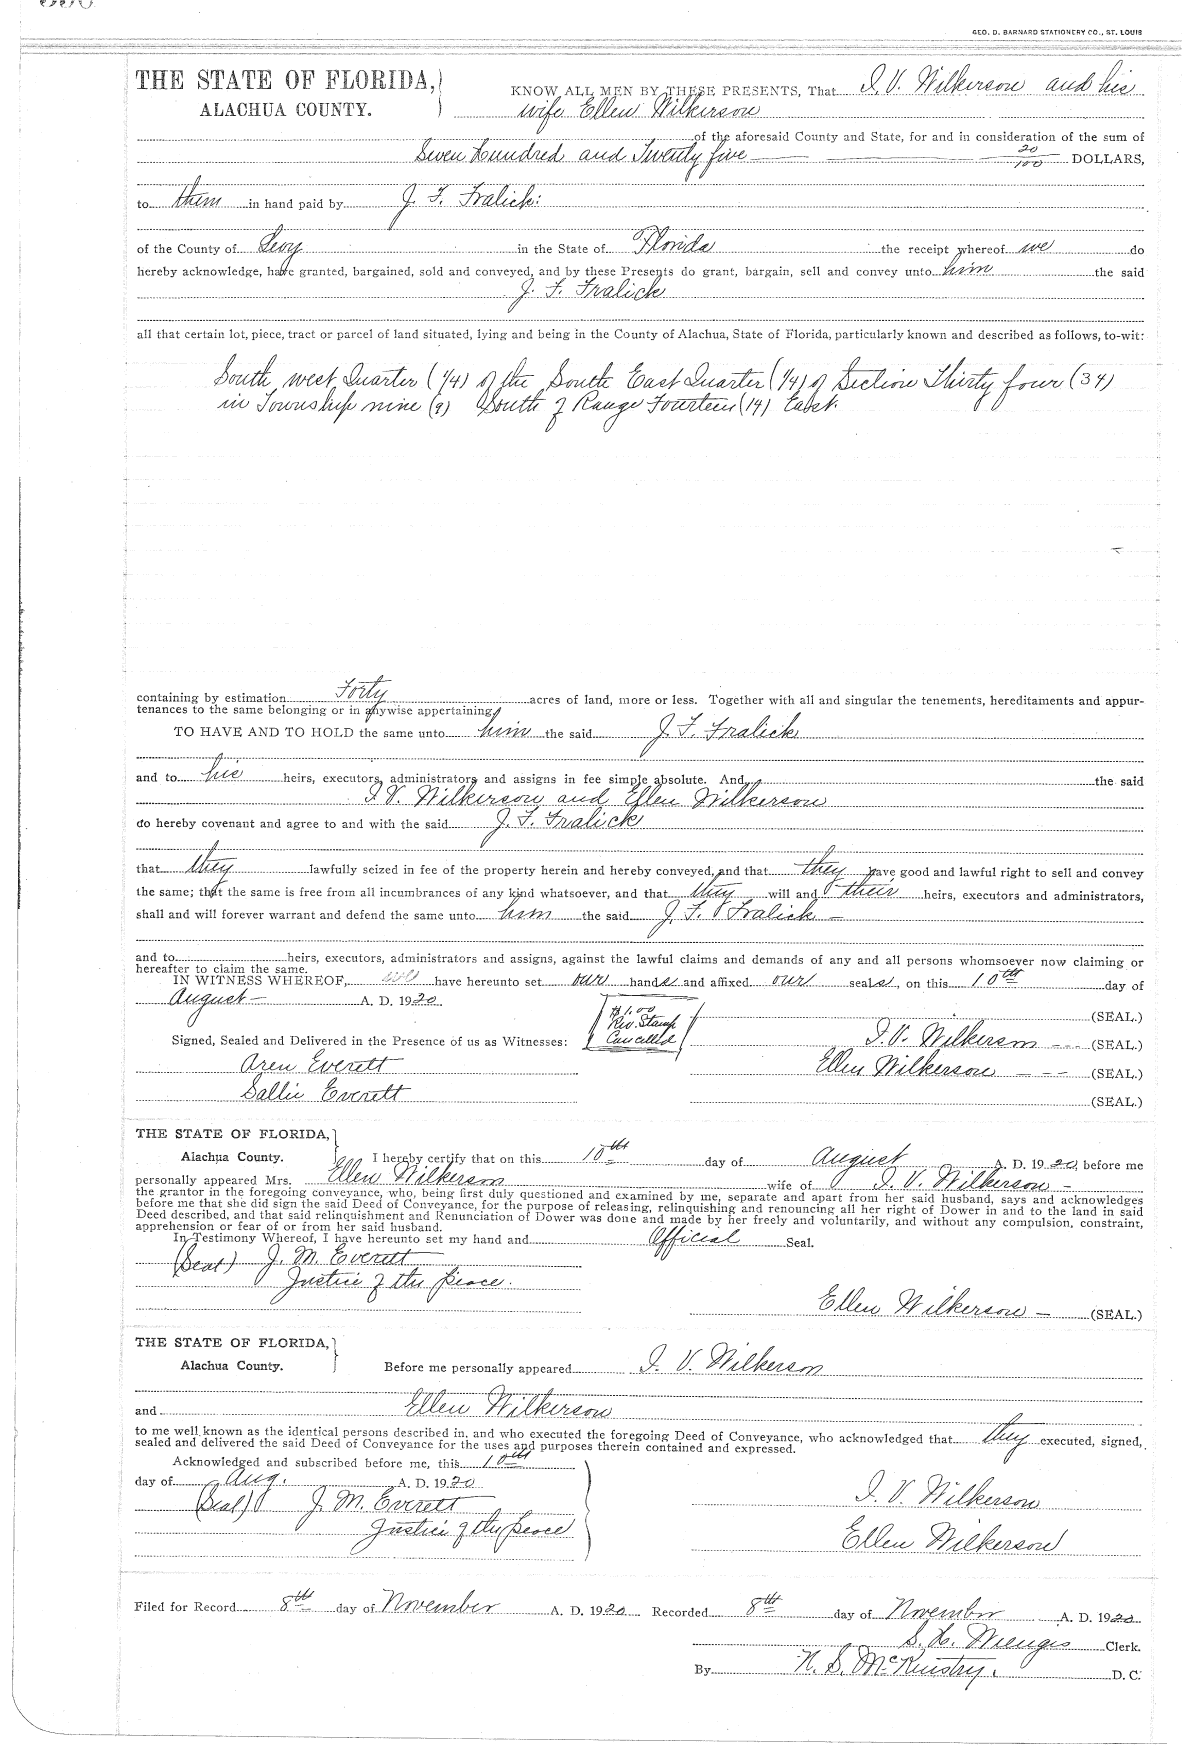 GEO. D. BARNARD STATIONERY CO., ST. LOUIS
THE STATE OF FLORIDA,
ALACHUA COUNTY.
KNOW ALL MEN BY THESE PRESENTS, That I. V. Wilkerson and his
wife Ellen Wilkerson
of the aforesaid County and State, for and in consideration of the sum of
Seven Hundred and Twenty five 20/100 DOLLARS,
to them in hand paid by J. F. Fralick:
of the County of Levy in the State of Florida the receipt whereof we do
hereby acknowledge, have granted, bargained, sold and conveyed, and by these Presents do grant, bargain, sell and convey unto him the said
J. F. Fralick
all that certain lot, piece, tract or parcel of land situated, lying and being in the County of Alachua, State of Florida, particularly known and described as follows, to-wit:
South west Quarter (1/4) of the South East Quarter (1/4) of Section Thirty four (34)
in Township nine (9) South of Range Fourteen (14) East.
containing by estimation Forty acres of land, more or less. Together with all and singular the tenements, hereditaments and appur-
tenances to the same belonging or in anywise appertaining.
TO HAVE AND TO HOLD the same unto him the said J. F. Fralick
and to his heirs, executors, administrators and assigns in fee simple absolute. And the said
I. V. Wilkerson and Ellen Wilkerson
do hereby covenant and agree to and with the said J. F. Fralick
that they lawfully seized in fee of the property herein and hereby conveyed, and that they have good and lawful right to sell and convey
the same; that the same is free from all incumbrances of any kind whatsoever, and that they will and their heirs, executors and administrators,
shall and will forever warrant and defend the same unto him the said J. F. Fralick –
and to heirs, executors, administrators and assigns, against the lawful claims and demands of any and all persons whomsoever now claiming or
hereafter to claim the same.
IN WITNESS WHEREOF, have hereunto set our hands and affixed our seals, on this 10th day of
August – A. D. 1920
$1.00
Rev. Stamp
Cancelled
(SEAL.)
Signed, Sealed and Delivered in the Presence of us as Witnesses:
I. V. Wilkerson (SEAL.)
Aren Everett
Ellen Wilkerson (SEAL.)
Sallie Everett
(SEAL.)
THE STATE OF FLORIDA,
Alachua County.
I hereby certify that on this 10th day of August A. D. 1920, before me
personally appeared Mrs. Ellen Wilkerson wife of I. V. Wilkerson –
the grantor in the foregoing conveyance, who, being first duly questioned and examined by me, separate and apart from her said husband, says and acknowledges
before me that she did sign the said Deed of Conveyance, for the purpose of releasing, relinquishing and renouncing all her right of Dower in and to the land in said
Deed described, and that said relinquishment and Renunciation of Dower was done and made by her freely and voluntarily, and without any compulsion, constraint,
apprehension or fear of or from her said husband.
In Testimony Whereof, I have hereunto set my hand and Official Seal.
(Seal) J. M. Everett
Justice of the peace.
Ellen Wilkerson – (SEAL.)
THE STATE OF FLORIDA,
Alachua County.
Before me personally appeared I. V. Wilkerson
and Ellen Wilkerson
to me well known as the identical persons described in, and who executed the foregoing Deed of Conveyance, who acknowledged that they executed, signed,
sealed and delivered the said Deed of Conveyance for the uses and purposes therein contained and expressed.
Acknowledged and subscribed before me, this 10th
day of Aug. A. D. 1920
(Seal) J. M. Everett
Justice of the peace
I. V. Wilkerson
Ellen Wilkerson
Filed for Record 8th day of November A. D. 1920 Recorded 8th day of November A. D. 1920
S. H. Wienges Clerk.
By N. S. McKinstry. D. C.